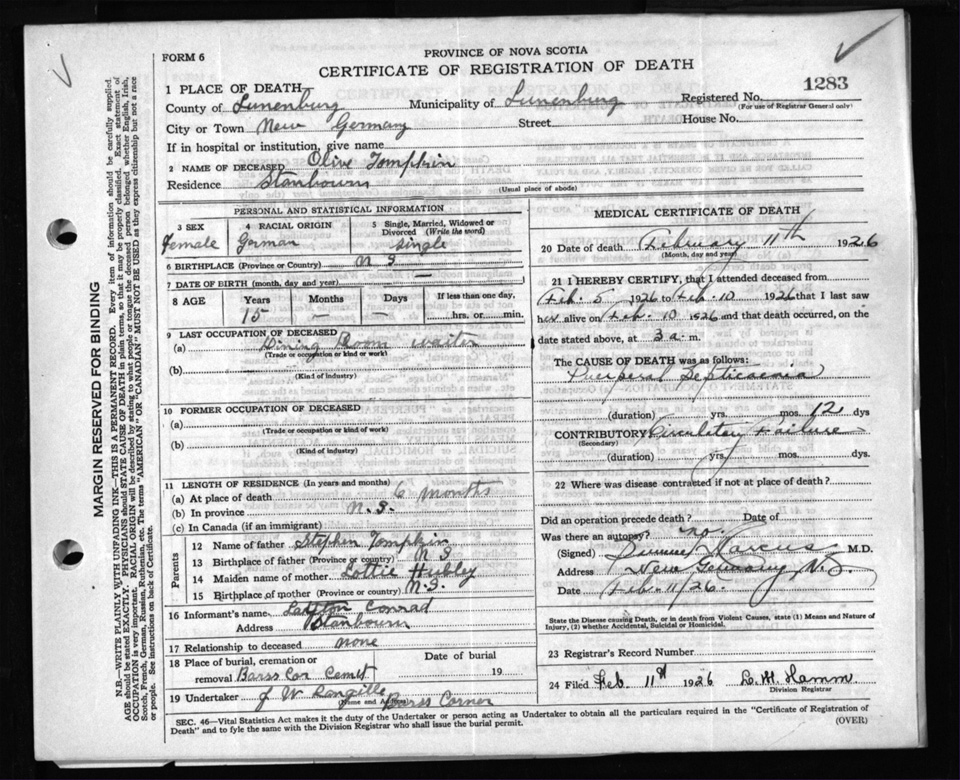 PROVINCE OF NOVA SCOTIA
FORM 6
CERTIFICATE OF REGISTRATION OF DEATH
1283
1 PLACE OF DEATH
County of Lunenburg Municipality of Lunenburg Registered No.
(For use of Registrar General only)
City or Town New Germany Street House No.
If in hospital or institution, give name
2 NAME OF DECEASED Olive Tompkin
Residence Stanbourn
(Usual place of abode)
PERSONAL AND STATISTICAL INFORMATION
3 SEX Female
4 RACIAL ORIGIN German
5 Single, Married, Widowed or Divorced (Write the word) Single
6 BIRTHPLACE (Province or Country) N S
7 DATE OF BIRTH (month, day and year) —
8 AGE Years Months Days If less than one day,
15 — — hrs. or min.
9 LAST OCCUPATION OF DECEASED
(a) Dining Room waiter
(Trade or occupation or kind or work)
(b)
(Kind of industry)
10 FORMER OCCUPATION OF DECEASED
(a)
(Trade or occupation or kind of work)
(b)
(Kind of industry)
11 LENGTH OF RESIDENCE (In years and months)
(a) At place of death 6 months
(b) In province N.S.
(c) In Canada (if an immigrant)
Parents
12 Name of father Stephen Tompkin
13 Birthplace of father (Province or country) N S
14 Maiden name of mother Lottie Hubley
15 Birthplace of mother (Province or country) N.S.
16 Informant's name Conrad
Address Stanbourn
17 Relationship to deceased none
18 Place of burial, cremation or Date of burial
removal Barss Cor Cemt 19
19 Undertaker J W Langille
(Name and Address) Barss Corner
MEDICAL CERTIFICATE OF DEATH
20 Date of death February 11th 1926
(Month, day and year)
21 I HEREBY CERTIFY, that I attended deceased from
Feb. 5 1926 to Feb. 10 1926 that I last saw
her alive on Feb. 10 1926 and that death occurred, on
date stated above, at 3 a. m.
The CAUSE OF DEATH was as follows:
Puerperal Septicaemia
(duration) yrs. mos. 12 dys
CONTRIBUTORY Circulatory Failure
(Secondary)
(duration) yrs. mos. dys.
22 Where was disease contracted if not at place of death?
Did an operation precede death? no Date of
Was there an autopsy?
(Signed) Marcus M.D.
Address New Germany N.S.
Date Feb. 11/26.
State the Disease causing Death, or in death from Violent Causes, state (1) Means and Nature of
Injury, (2) whether Accidental, Suicidal or Homicidal.
23 Registrar's Record Number
24 Filed Feb 11th 1926 Hamm
Division Registrar
SEC. 46—Vital Statistics Act makes it the duty of the Undertaker or person acting as Undertaker to obtain all the particulars required in the "Certificate of Registration of
Death" and to fyle the same with the Division Registrar who shall issue the burial permit. (OVER)
MARGIN RESERVED FOR BINDING
N.B.—WRITE PLAINLY WITH UNFADING INK—THIS IS A PERMANENT RECORD. Every item of information should be carefully supplied.
AGE should be stated EXACTLY. PHYSICIANS should STATE CAUSE OF DEATH in plain terms, so that it may be properly classified. Exact statement of
OCCUPATION is very important. RACIAL ORIGIN will be described by stating to what people or tongue the deceased person belonged whether English, Irish,
Scotch, French, German, Russian, Ruthenian, etc. The terms "AMERICAN" OR "CANADIAN" MUST NOT BE USED as they express citizenship but not a race
or people. See instructions on back of Certificate.